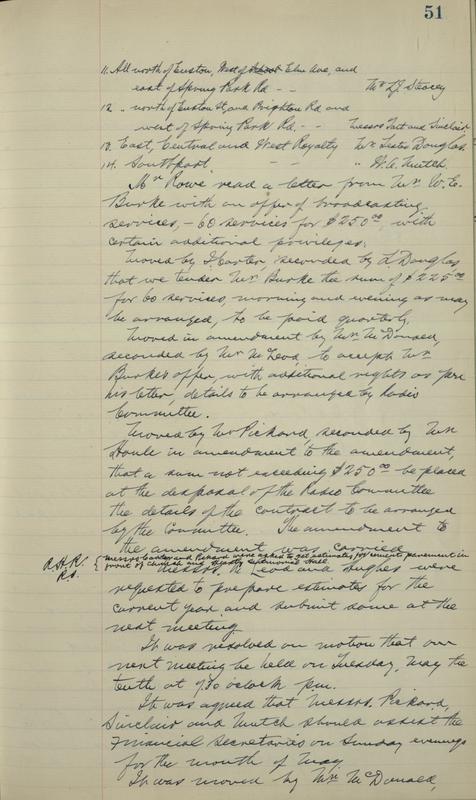 51
11. All north of Euston, West of Elm Ave, and
east of Spring Park Rd - - Mr L.J. Stacey
12 .. north of Euston St, and Brighton Rd and
west of Spring Park Rd. - - Messrs Tait and Sinclair
13. East, Central and West Royalty Mr Lester Douglas
14. Southport - - " W.A. Mutch
Mr Rowe read a letter from Mr. W.E.
Burke with an offer of broadcasting
services, - 60 services for $250.00, with
certain additional privileges.
Moved by J Carter seconded by L Douglas
that we tender Mr Burke the sum of $225.00
for 60 services, morning and evening as may
be arranged, to be paid quarterly.
Moved in amendment by Mr. McDonald,
seconded by Mr McLeod, to accept Mr
Burke's offer, with additional rights as per
his letter, details to be arranged by Radio
Committee.
Moved by Mr Pickard, seconded by Mr
in amendment to the amendment,
that a sum not exceeding $250.00 be placed
at the disposal of the Radio Committee
the details of the contract to be arranged
by the Committee. The amendment to
the amendment was carried.
Messrs Carter and Pickard were asked to get estimates for cement pavement in
front of church and Heartz Memorial Hall
Messrs. McLeod and Hughes were
requested to prepare estimates for the
current year and submit same at the
next meeting.
It was resolved on motion that our
next meeting be held on Tuesday, May the
tenth at 7.30 o'clock p.m.
It was agreed that Messrs. Pickard,
Sinclair and Mutch should assist the
Financial Secretaries on Sunday evenings
for the month of May
It was moved by Mr. McDonald,